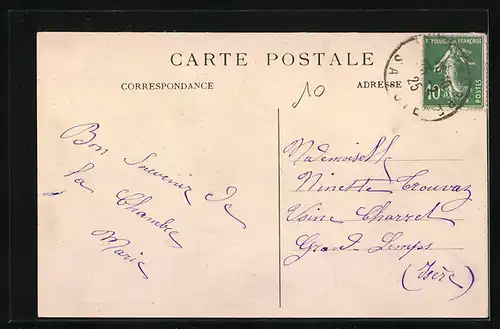 CARTE POSTALE
CORRESPONDANCE
ADRESSE
10
REPUBLIQUE FRANÇAISE
10
POSTES
SAVOIE
25
Bon Souvenir de
la Chambre
Marie
Mademoiselle
Ninette Trouvaz
Usine Charret
Grand Lemps
(Isère)